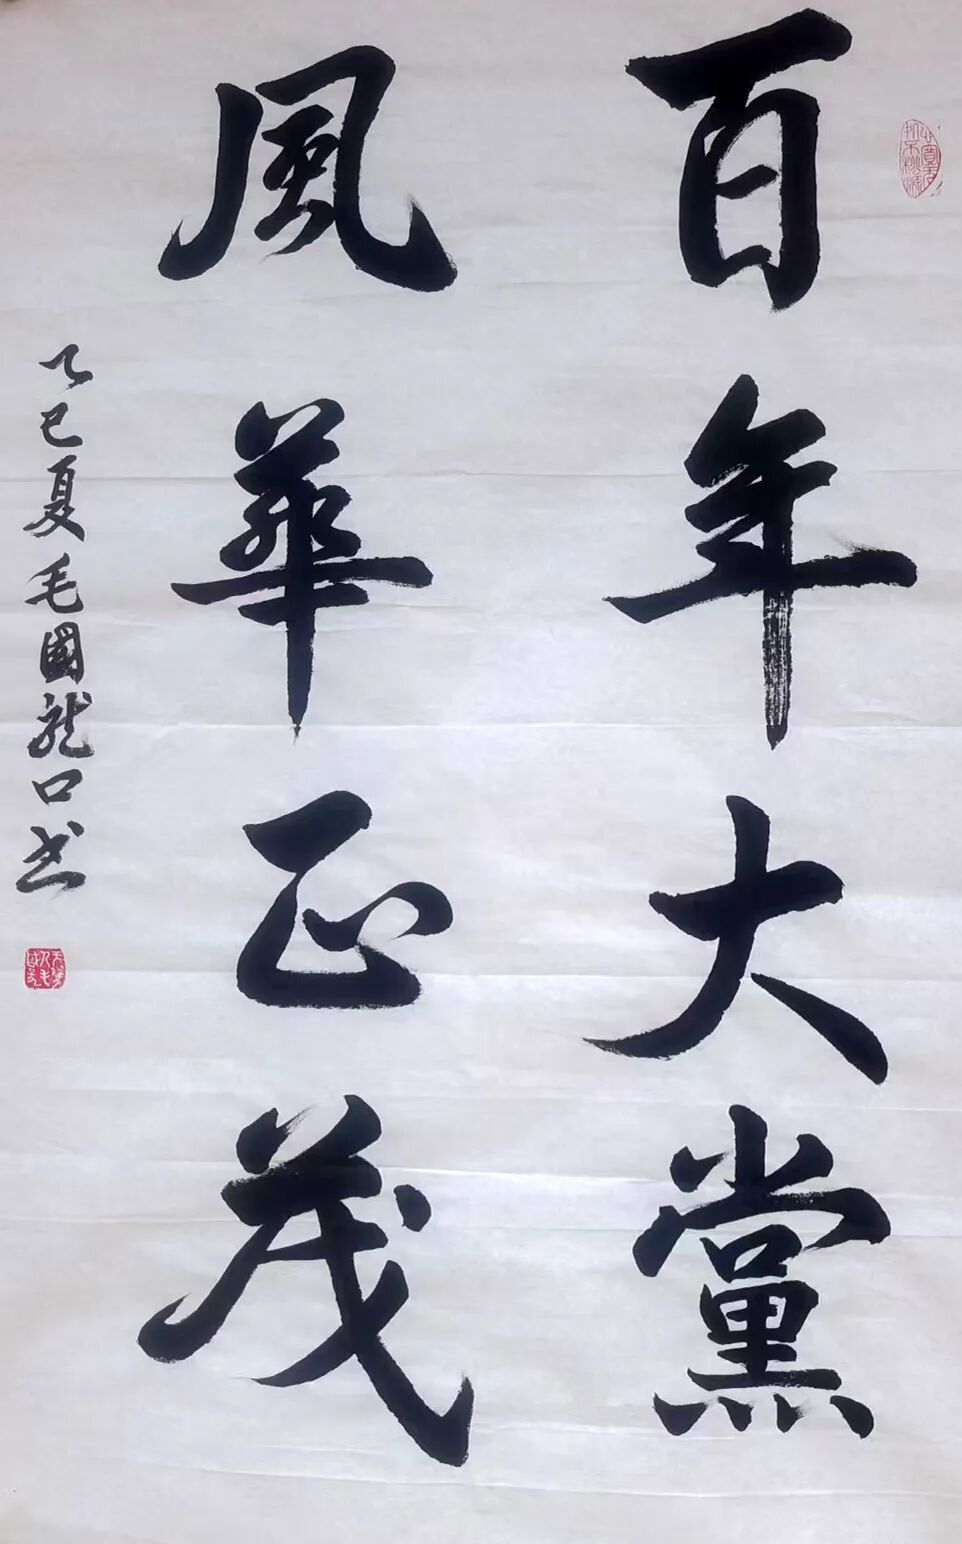 百年大黨
風華正茂
乙巳夏毛國龍口书